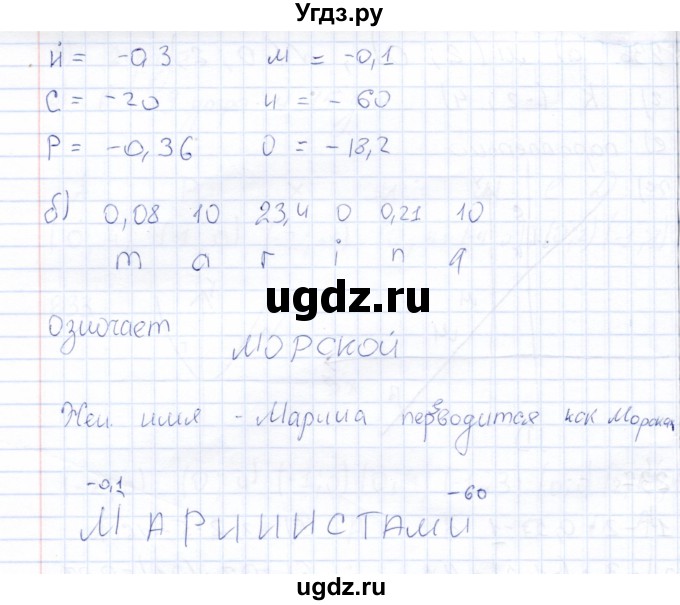 Угдз.ру
Й = -0,3 М = -0,1
С = -20 И = - 60
Р = -0,36 О = -18,2
б) 0,08 10 23,4 0 0,21 10
m a r i n a
ugdz.ru
Означает МОРСКОЙ
Жен. имя - Марина переводится как Морская
-0,1 -60
МАРИНИСТАМИ
ugdz.ru